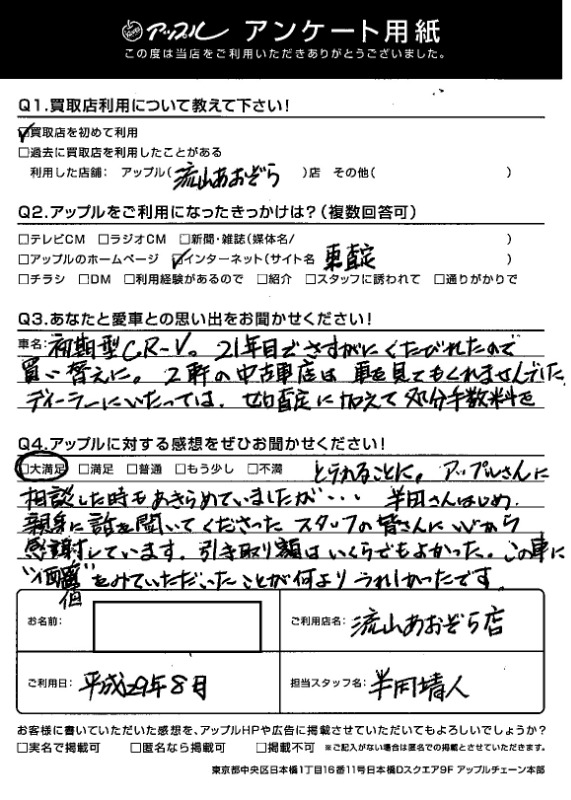 アップル アンケート用紙
この度は当店をご利用いただきありがとうございました。
Q1.買取店利用について教えて下さい!
☑買取店を初めて利用
□過去に買取店を利用したことがある
利用した店舗: アップル(流山あおぞら )店 その他( )
Q2.アップルをご利用になったきっかけは?(複数回答可)
□テレビCM □ラジオCM □新聞・雑誌(媒体名/ )
□アップルのホームページ ☑インターネット(サイト名 車査定 )
□チラシ □DM □利用経験があるので □紹介 □スタッフに誘われて □通りがかりで
Q3.あなたと愛車との思い出をお聞かせください!
車名: 初期型CR-V。21年目でさすがにくたびれたので
買い替えに。2軒の中古車店は車を見てもくれませんでした
ディーラーにいたっては、ゼロ査定に加えて処分手数料を
Q4.アップルに対する感想をぜひお聞かせください!
□大満足 □満足 □普通 □もう少し □不満 とられることに。アップルさんに
相談した時もあきらめていましたが・・・ 半田さんはじめ、
親身に話を聞いてくださったスタッフの皆さんに心から
感謝しています。引き取り額はいくらでもよかった。この車に
"価値"をみていただいたことが何よりうれしかったです。
お名前:
ご利用店名: 流山あおぞら店
ご利用日: 平成29年8月
担当スタッフ名: 半田靖人
お客様に書いていただいた感想を、アップルHPや広告に掲載させていただいてもよろしいでしょうか?
□実名で掲載可 □匿名なら掲載可 □掲載不可 ※ご記入がない場合は匿名での掲載とさせていただきます。
東京都中央区日本橋1丁目16番11号日本橋Dスクエア9F アップルチェーン本部